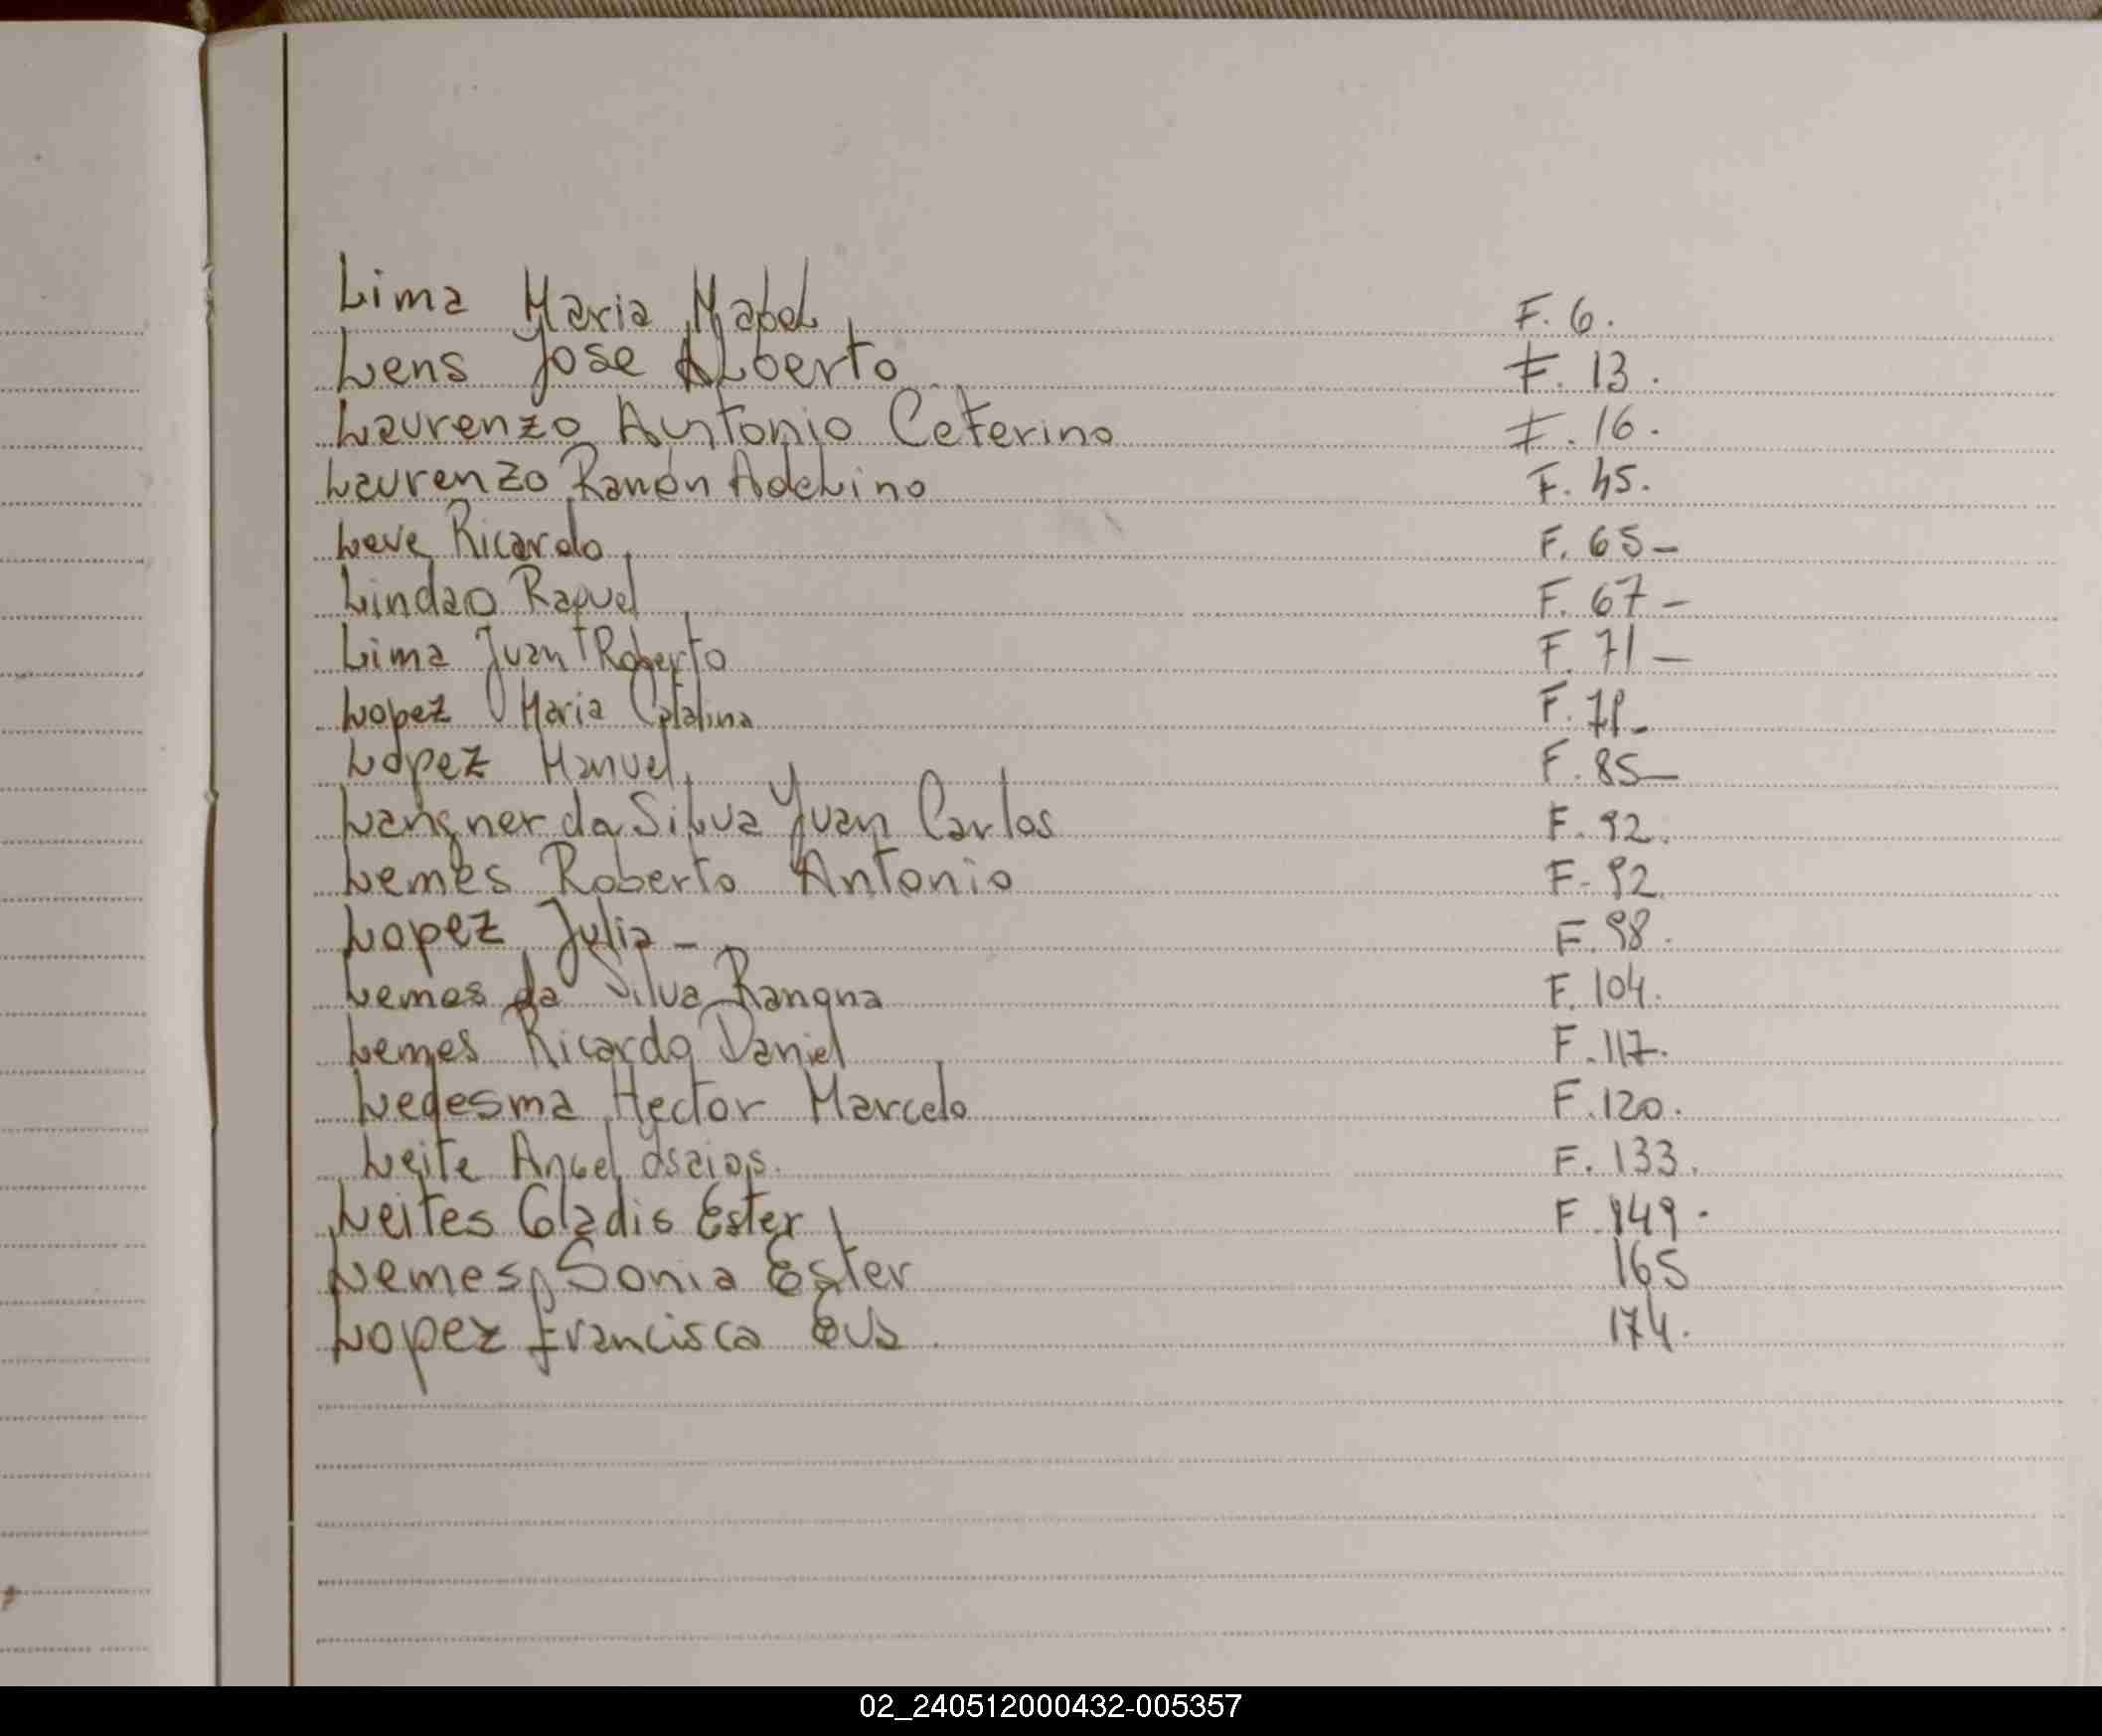 Lima Maria Mabel F. 6.
Lens Jose Alberto F. 13.
Laurenzo Auntonio Ceferino F. 16.
Laurenzo Ramón Adelino F. 45.
Leve Ricardo F. 65-
Lindao Raquel F. 67-
Lima Juan Roberto F. 71-
Lopez Maria Catalina F.
Lopez Manuel F. 85-
Langner da Silva Yuan Carlos F. 92.
Lemes Roberto Antonio F- 92.
Lopez Julia - F. 98.
Lemos da Silva F. 104.
Lemes Ricardo Daniel F. 117.
Ledesma Hector Marcelo F. 120.
Leite Angel F. 133.
Leites Gladis Ester F. 149.
Lemes Sonia Ester 165
Lopez Francisca Eva. 174.
02_240512000432-005357